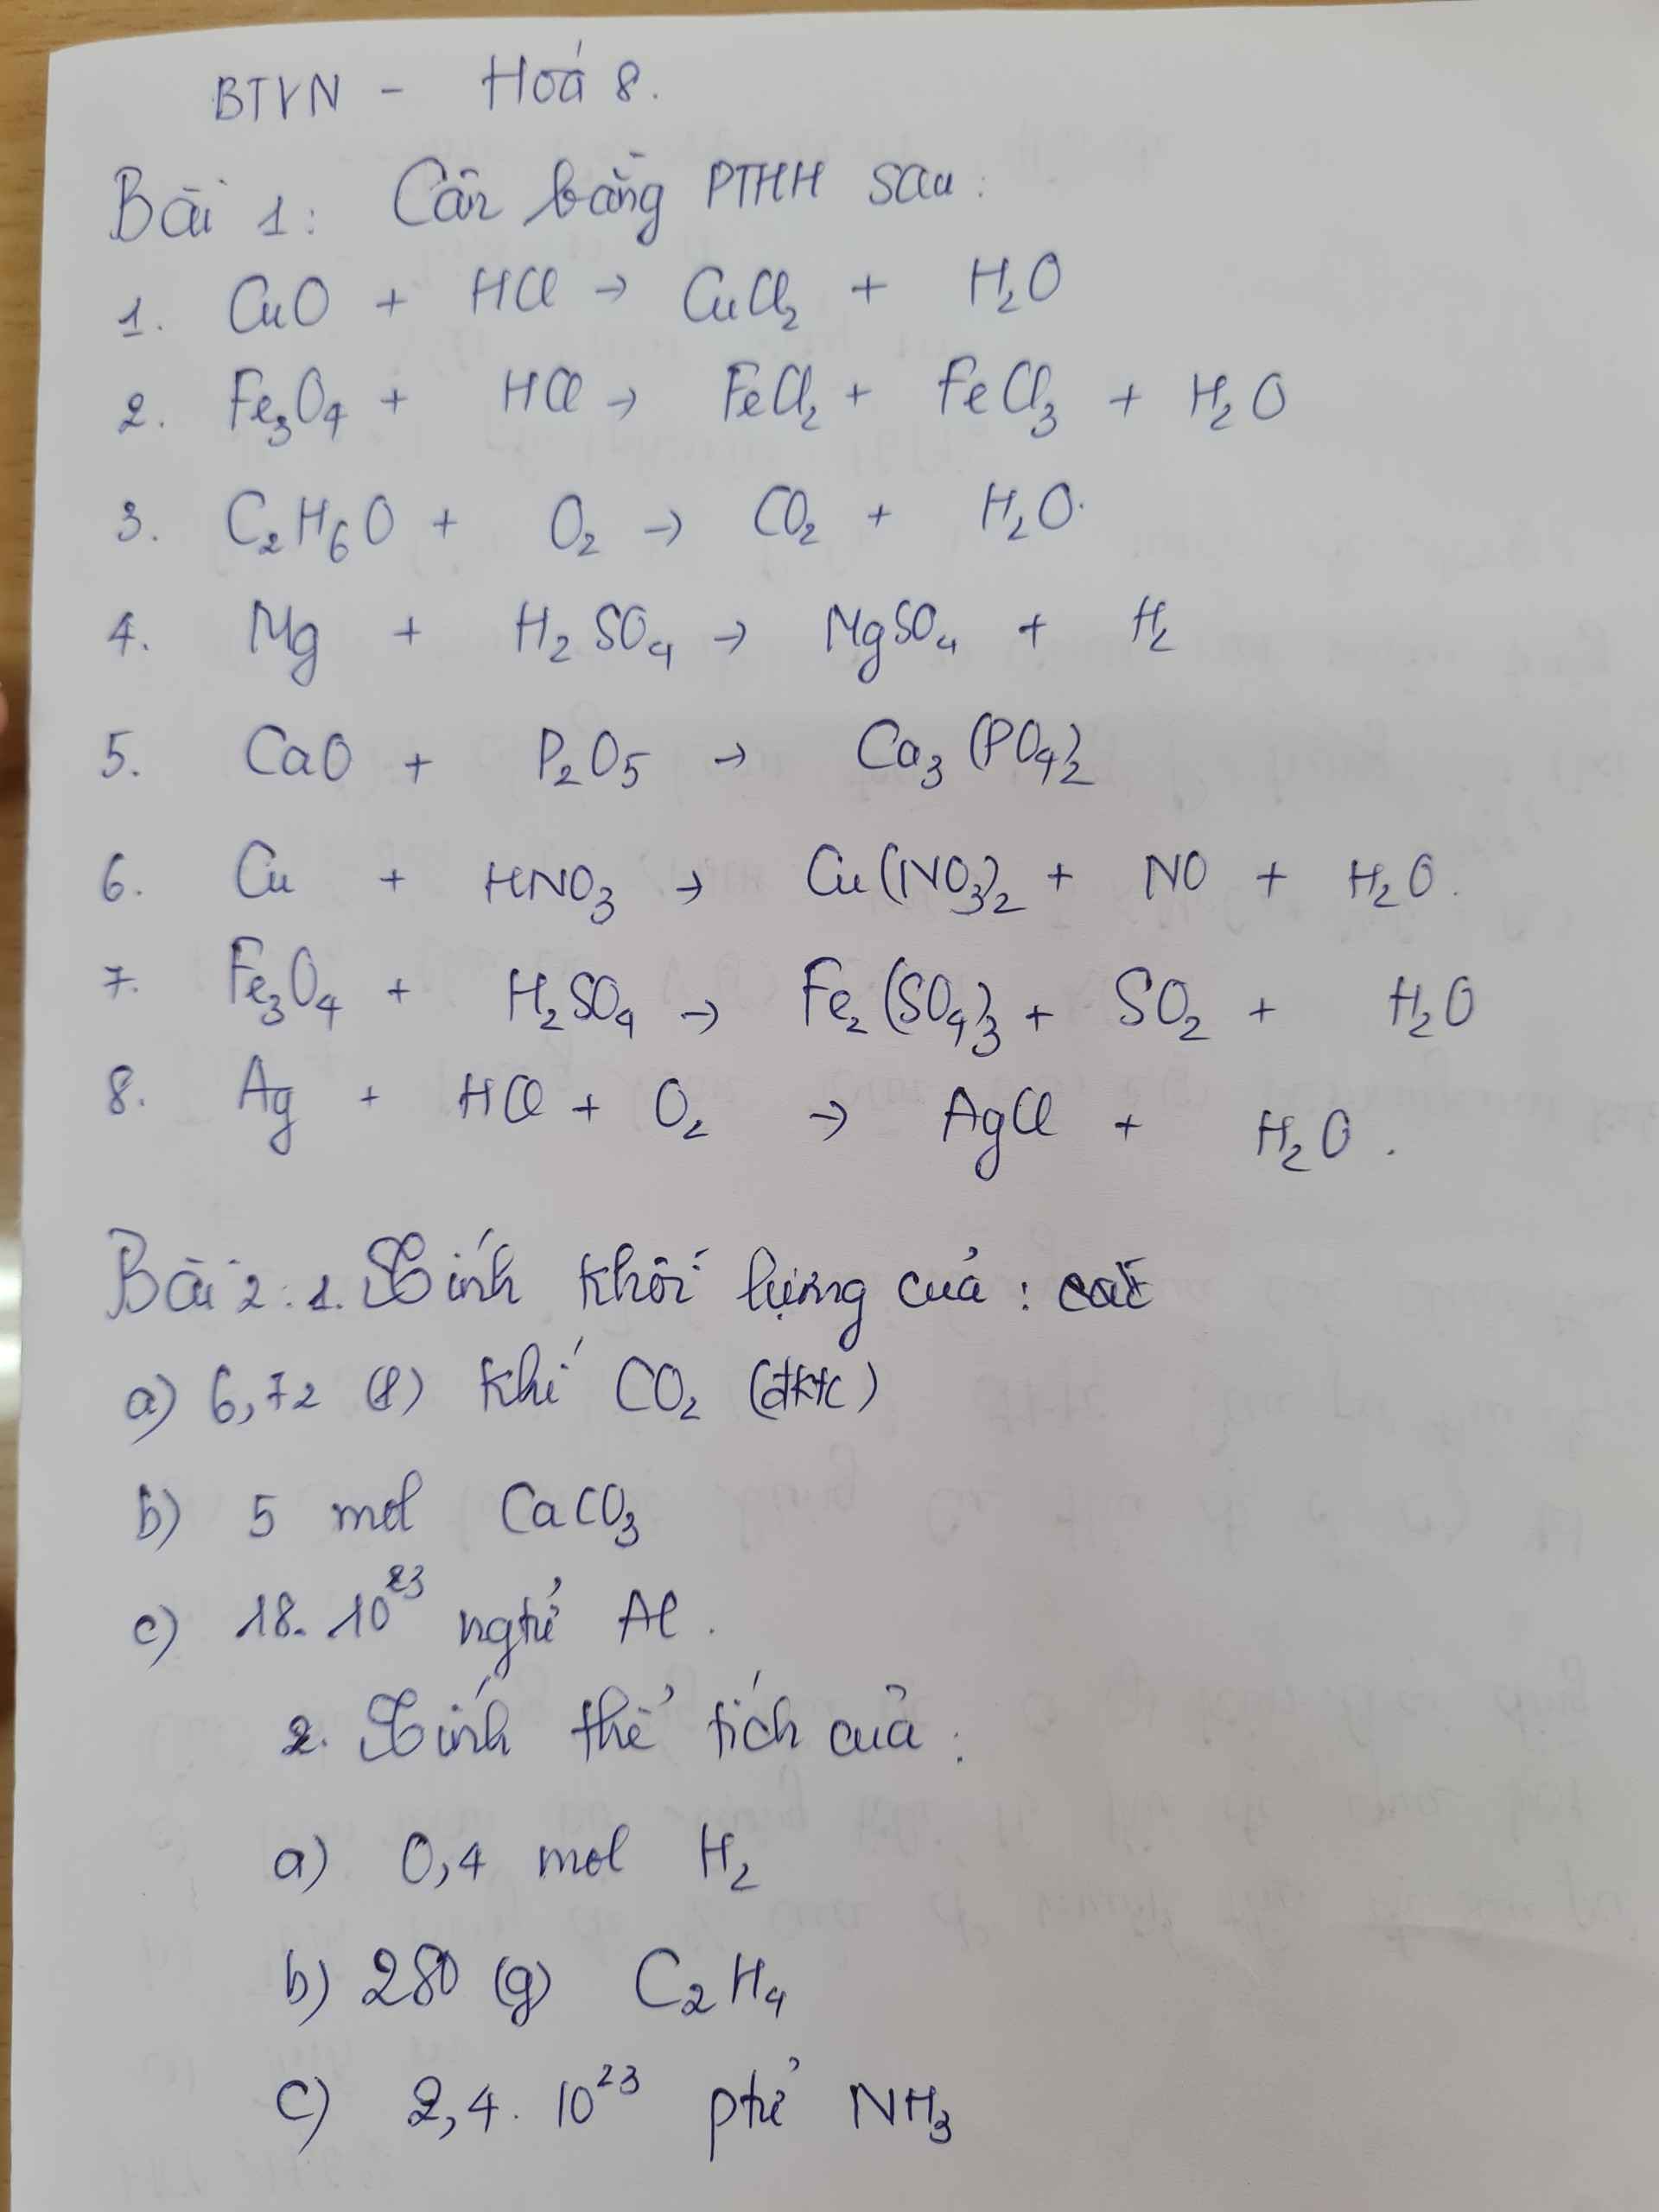 BTVN - Hoá 8.
Bài 1: Cân bằng PTHH sau:
1. CuO + HCl → CuCl₂ + H₂O
2. Fe₃O₄ + HCl → FeCl₂ + FeCl₃ + H₂O
3. C₂H₆O + O₂ → CO₂ + H₂O.
4. Mg + H₂SO₄ → MgSO₄ + H₂
5. CaO + P₂O₅ → Ca₃(PO₄)₂
6. Cu + HNO₃ → Cu(NO₃)₂ + NO + H₂O.
7. Fe₃O₄ + H₂SO₄ → Fe₂(SO₄)₃ + SO₂ + H₂O
8. Ag + HCl + O₂ → AgCl + H₂O.
Bài 2: 1. Tính khối lượng của: các
a) 6,72 (l) khí CO₂ (đktc)
b) 5 mol CaCO₃
c) 18. 10²³ ngtử Al.
2. Tính thể tích của:
a) 0,4 mol H₂
b) 280 (g) C₂H₄
c) 2,4. 10²³ ptử NH₃